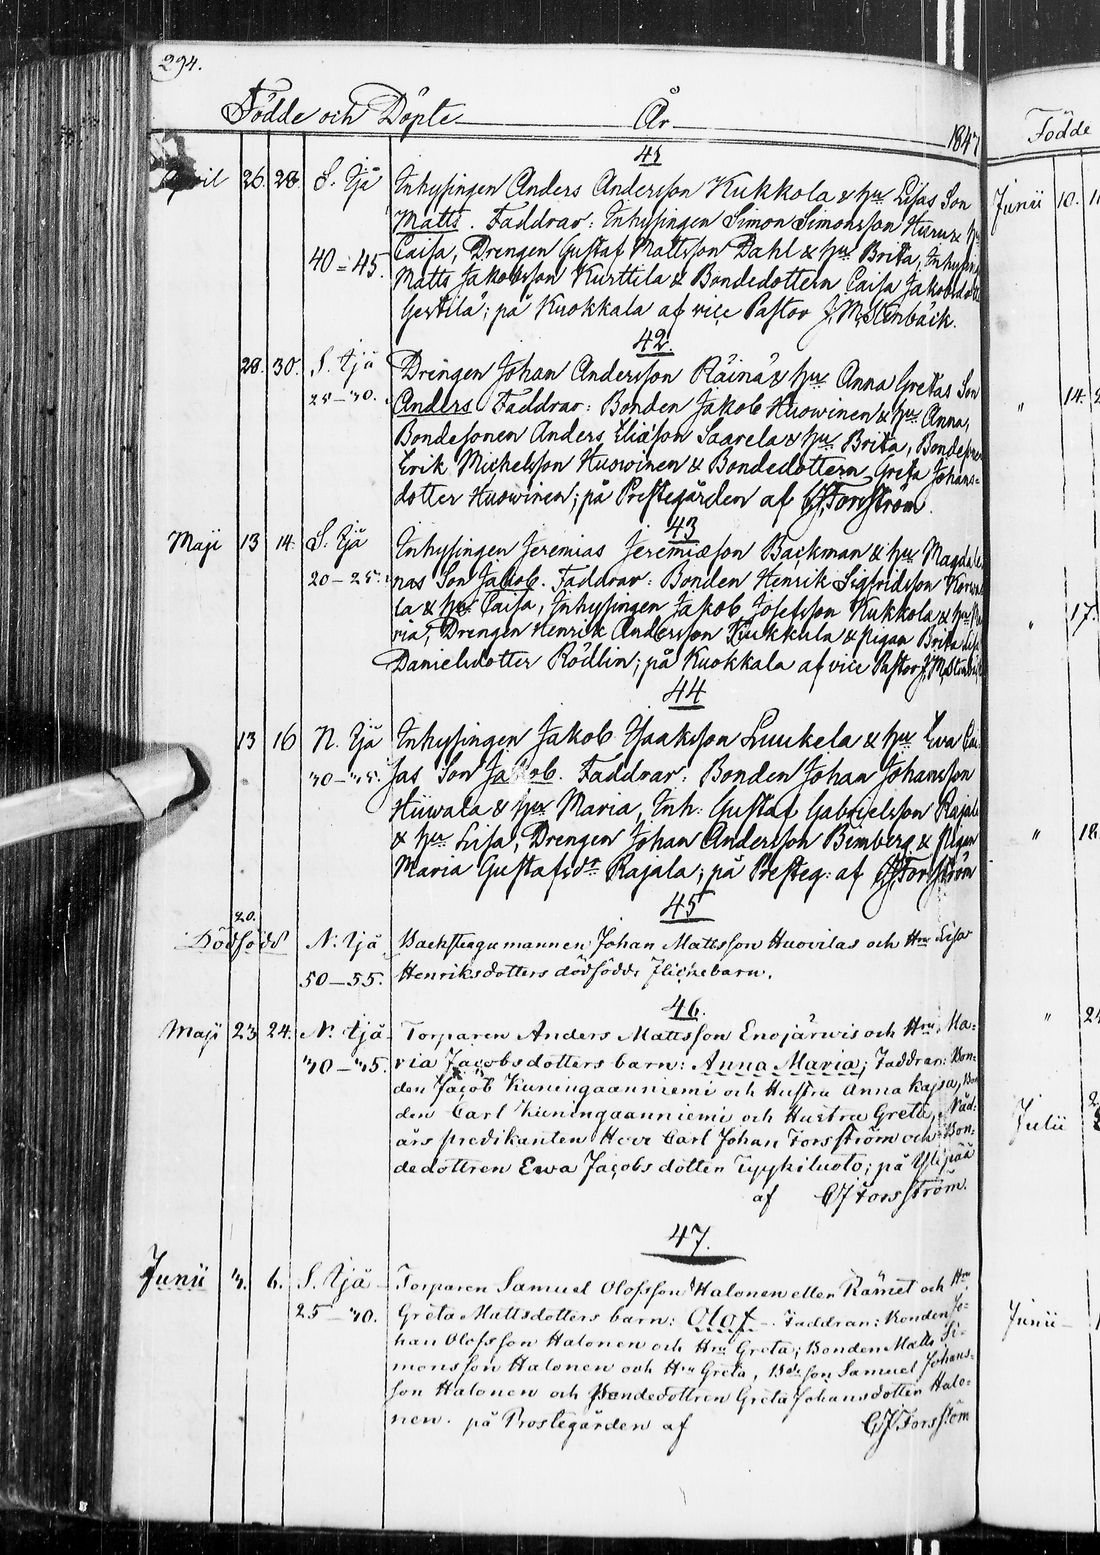 294.
Födde och Döpte År 1847
41
April 26. 28 S. Tjä Inhysingen Anders Andersson Kukkola & hu Lisas Son
Matts. Faddrar: Inhysingen Simon Simonsson Hu
40-45. Caisa, Drengen Gustaf Mattsson Dahl & hu Brita, Inhysin
Matts Jakobsson Kurttila & Bondedottern Caisa Jakobsdotte
Gertilä; på Kuokkala af vice Pastor J. M. Stenbäck.
42.
28. 30. S. Tjä Drengen Johan Andersson Räinä & hu Anna Gretas Son
25-30. Anders. Faddrar: Bonden Jakob Huowinen & hu Anna,
Bondesonen Anders Eliæson Saarela & hu Brita, Bondesonen
Erik Michelsson Huowinen & Bondedottern Greta Johans=
dotter Huowinen; på Prestegården af CJForsström.
43
Maji 13 14 S. Tjä Inhysingen Jeremias Jeremiæson Backman & hu Magdale
20-25. nas Son Jakob. Faddrar: Bonden Henrik Sigfridsson Korwa
la & hu Caisa, Inhysingen Jakob Josefsson Kukkola & hu Ma
ria, Drengen Henrik Andersson Kukkula & Pigan Brita Lisa
Danielsdotter Rödlin; på Kuokkala af vice Pastor J. M. Stenbäck
44
13 16 N. Tjä Inhysingen Jakob Isaksson Luukela & hu Eva Cai
30-35. sas Son Jakob. Faddrar: Bonden Johan Johansson
Hiiwala & hu Maria, Inh: Gustaf Gabrielsson Rajala
& hu Lisa, Drengen Johan Andersson Bimberg & Pigan
Maria Gustafsdr Rajala; på Presteg: af CJForsström
45
20.
Dödfödd N. Tjä Backstugumannen Johan Mattsson Huovilas och Hu Lisa
50-55. Henriksdotters dödfödde flickebarn.
46.
Maji 23 24. N. Tjä Torparen Anders Mattsson Enojärwis och Hu Ma-
30-35. ria Jacobsdotters barn: Anna Maria; Faddrar: Bon-
den Jacob Kuningaanniemi och Hustru Anna Kajsa, Bon
den Carl Kuningaanniemi och Hustru Greta, Nåd-
års predikanten Herr Carl Johan Forsström och Bon-
dedottren Ewa Jacobsdotter Tyykiluoto; på Ylipää
af CJForsström.
47.
Junii 3. 6. S. Tjä Torparen Samuel Olofsson Halonen eller Rämet och Hu
25-30. Greta Mattsdotters barn: Olof. Faddrar: Bonden Jo-
han Olofsson Halonen och Hu Greta; Bonden Matts Si-
monsson Halonen och Hu Greta, Bdeson Samuel Johans-
son Halonen och Bondedottren Greta Johansdotter Halo-
nen. på Prostegården af CJForsström
Födde
Junii 10.
" 14.
" 17.
" 18
" 24
Julii
Junii